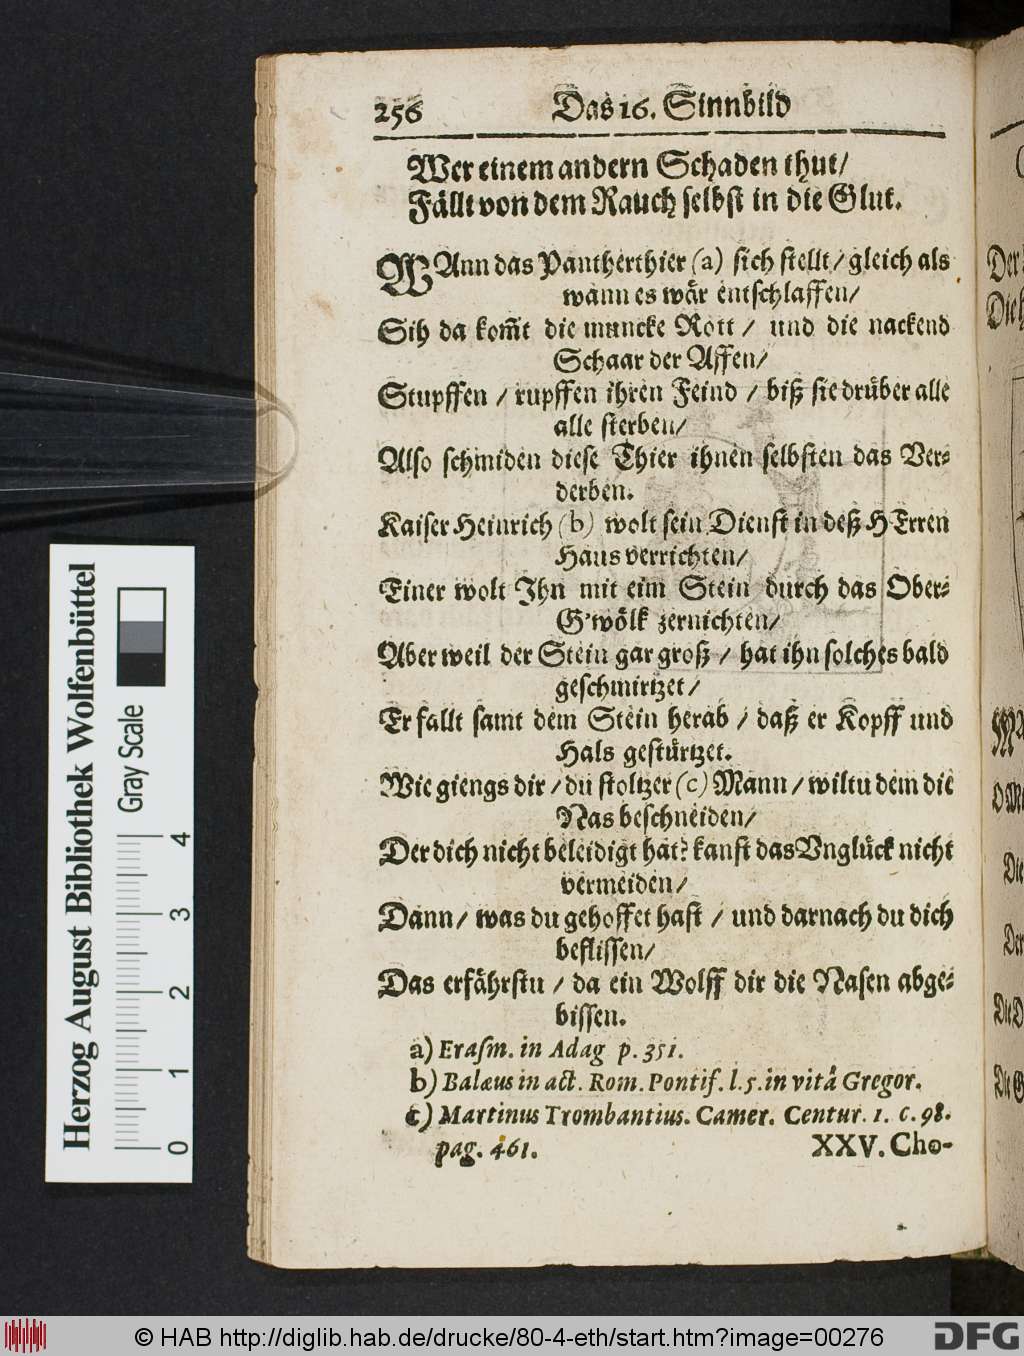 256 Das 16. Sinnbild
Wer einem andern Schaden thut/
Fällt von dem Rauch selbst in die Glut.
WAnn das Pantherthier (a) sich stellt/ gleich als
wann es wär entschlaffen/
Sih da kom̃t die muncke Rott / und die nackend
Schaar der Affen/
Stupffen / rupffen ihren Feind / biß sie drüber alle
alle sterben/
Also schmiden diese Thier ihnen selbsten das Ver-
derben.
Kaiser Heinrich (b) wolt sein Dienst in deß HErren
Haus verrichten/
Einer wolt Ihn mit eim Stein durch das Ober-
G'wölk zernichten/
Aber weil der Stein gar groß / hat ihn solches bald
geschmirtzet/
Er fallt samt dem Stein herab / daß er Kopff und
Hals gestürtzet.
Wie giengs dir / du stoltzer (c) Mann / wiltu dem die
Nas beschneiden/
Der dich nicht beleidigt hat? kanst das Vnglück nicht
vermeiden/
Dann/ was du gehoffet hast / und darnach du dich
beflissen/
Das erfährstu / da ein Wolff dir die Nasen abge-
bissen.
a) Erasm. in Adag p. 351.
b) Balæus in act. Rom. Pontif. l. 5. in vitâ Gregor.
c) Martinus Trombantius. Camer. Centur. 1. c. 98.
pag. 461. XXV. Cho-
Herzog August Bibliothek Wolfenbüttel
Gray Scale
0 1 2 3 4
Der
Die
Der
© HAB http://diglib.hab.de/drucke/80-4-eth/start.htm?image=00276 DFG